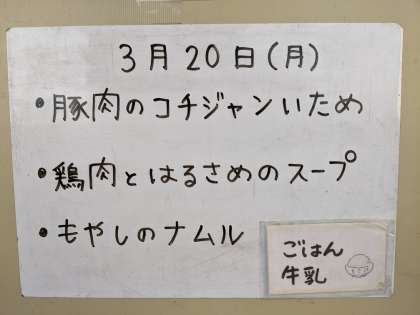 3月20日(月)
•豚肉のコチジャンいため
•鶏肉とはるさめのスープ
•もやしのナムル
ごはん
牛乳